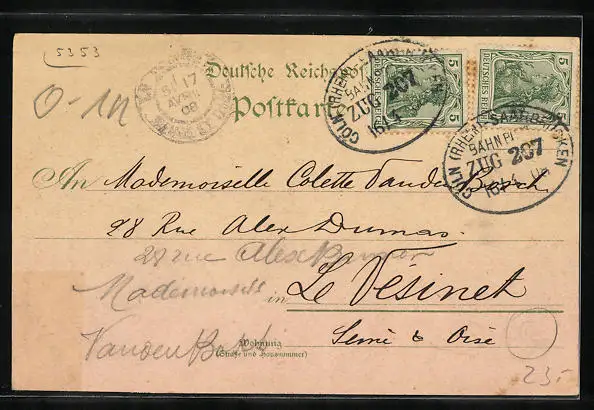 5353
Deutsche Reichspost
Postkarte
CÖLN (RHEIN) SAARBRÜCKEN
BAHNPOST
ZUG 207
16 4
5 DEUTSCHES REICH 5
5 DEUTSCHES REICH 5
CÖLN (RHEIN) SAARBRÜCKEN
BAHNPOST
ZUG 207
16 4 08
17
AVRIL
08
An Mademoiselle Colette Vanden Bosch
28 Rue Alex Dumas.
28 rue Alex Dumas
Mademoiselle
in Le Vésinet
Vanden Bosch
Seine & Oise
Wohnung
(Straße und Hausnummer)
23.-